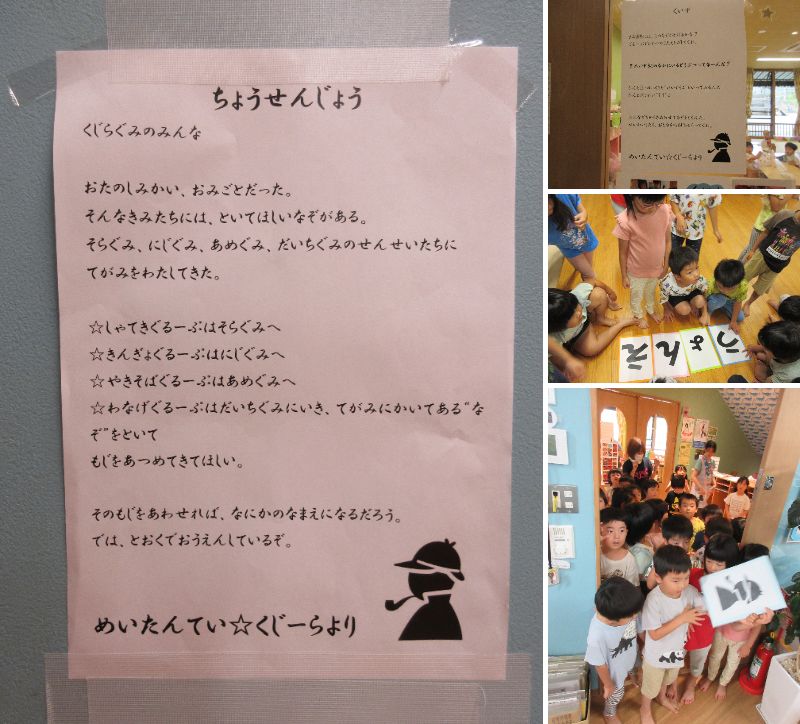 ちょうせんじょう
くじらぐみのみんな
おたのしみかい、おみごとだった。
そんなきみたちには、といてほしいなぞがある。
そらぐみ、にじぐみ、あめぐみ、だいちぐみのせんせいたちに
てがみをわたしてきた。
☆しゃてきぐるーぷはそらぐみへ
☆きんぎょぐるーぷはにじぐみへ
☆やきそばぐるーぷはあめぐみへ
☆わなげぐるーぷはだいちぐみにいき、てがみにかいてある“な
ぞ”をといて
もじをあつめてきてほしい。
そのもじをあわせれば、なにかのなまえになるだろう。
では、とおくでおうえんしているぞ。
めいたんてい☆くじーらより
くいず
めいたんてい☆くじーらより
え ん ょ う